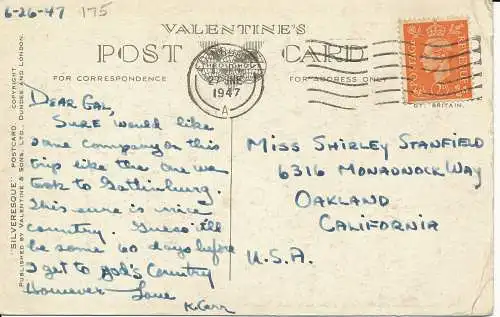 6-26-47 175
VALENTINE'S
POST CARD
FOR CORRESPONDENCE
FOR ADDRESS ONLY
27 JNE
1947
-A-
POSTAGE
REVENUE
BRITAIN.
"SILVERESQUE" POSTCARD. COPYRIGHT.
PUBLISHED BY VALENTINE & SONS, LTD., DUNDEE AND LONDON.
DEAR GAL,
SURE would like
some company on this
trip like the one we
took to Gatlinburg.
This sure is nice
country. Guess it'll
be some 60 days before
I get to God's Country
However - Love
K. Carr
MISS SHIRLEY STANFIELD
6316 MONADNOCK WAY
OAKLAND
CALIFORNIA
U.S.A.